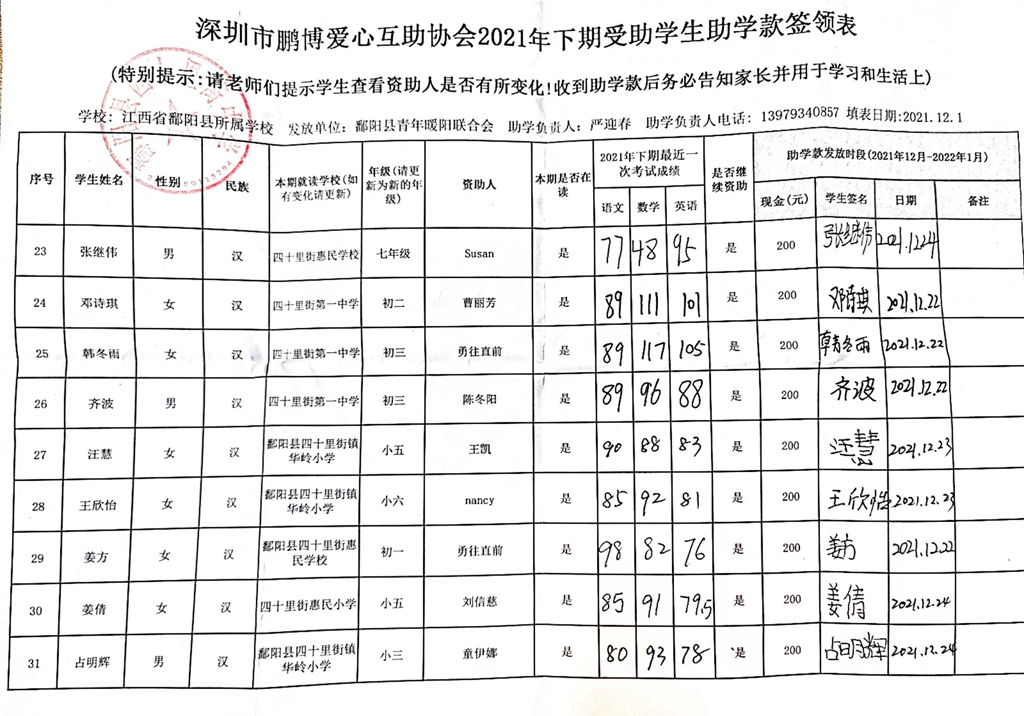 深圳市鹏博爱心互助协会2021年下期受助学生助学款签领表
(特别提示:请老师们提示学生查看资助人是否有所变化!收到助学款后务必告知家长并用于学习和生活上)
学校: 江西省鄱阳县所属学校 发放单位: 鄱阳县青年暖阳联合会 助学负责人: 严迎春 助学负责人电话: 13979340857 填表日期:2021.12.1
序号 学生姓名 性别 民族 本期就读学校(如有变化请更新) 年级(请更新为新的年级) 资助人 本期是否在读 2021年下期最近一次考试成绩 是否继续资助 助学款发放时段(2021年12月-2022年1月)
语文 数学 英语 现金(元) 学生签名 日期 备注
23 张继伟 男 汉 四十里街惠民学校 七年级 Susan 是 77 48 95 是 200 张继伟 2021.1224
24 邓诗琪 女 汉 四十里街第一中学 初二 曹丽芳 是 89 111 101 是 200 邓诗琪 2021.12.22
25 韩冬雨 女 汉 四十里街第一中学 初三 勇往直前 是 89 117 105 是 200 韩冬雨 2021.12.22
26 齐波 男 汉 四十里街第一中学 初三 陈冬阳 是 89 96 88 是 200 齐波 2021.12.22
27 汪慧 女 汉 鄱阳县四十里街镇华岭小学 小五 王凯 是 90 88 83 是 200 汪慧 2021.12.23
28 王欣怡 女 汉 鄱阳县四十里街镇华岭小学 小六 nancy 是 85 92 81 是 200 王欣怡 2021.12.23
29 姜方 女 汉 鄱阳县四十里街惠民学校 初一 勇往直前 是 98 82 76 是 200 姜方 2021.12.22
30 姜倩 女 汉 四十里街惠民小学 小五 刘信慈 是 85 91 79.5 是 200 姜倩 2021.12.24
31 占明辉 男 汉 鄱阳县四十里街镇华岭小学 小三 童伊娜 是 80 93 78 是 200 占明辉 2021.12.24